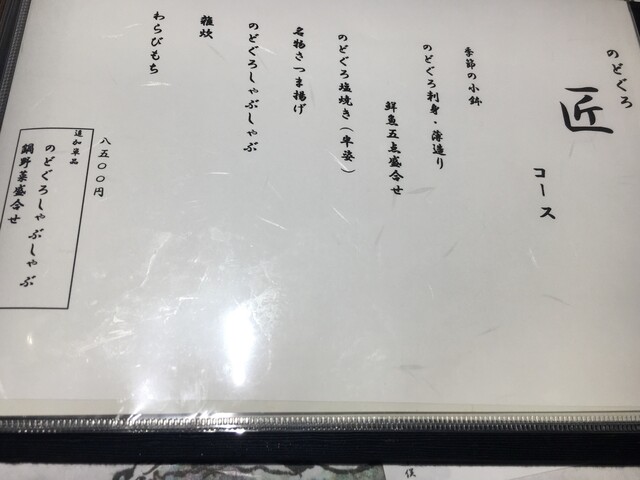 のどぐろ
匠
コース
季節の小鉢
のどぐろ刺身・薄造り
鮮魚五点盛合せ
のどぐろ塩焼き(半姿)
名物さつま揚げ
のどぐろしゃぶしゃぶ
雑炊
わらびもち
八五〇〇円
追加単品
のどぐろしゃぶしゃぶ
鍋野菜盛合せ